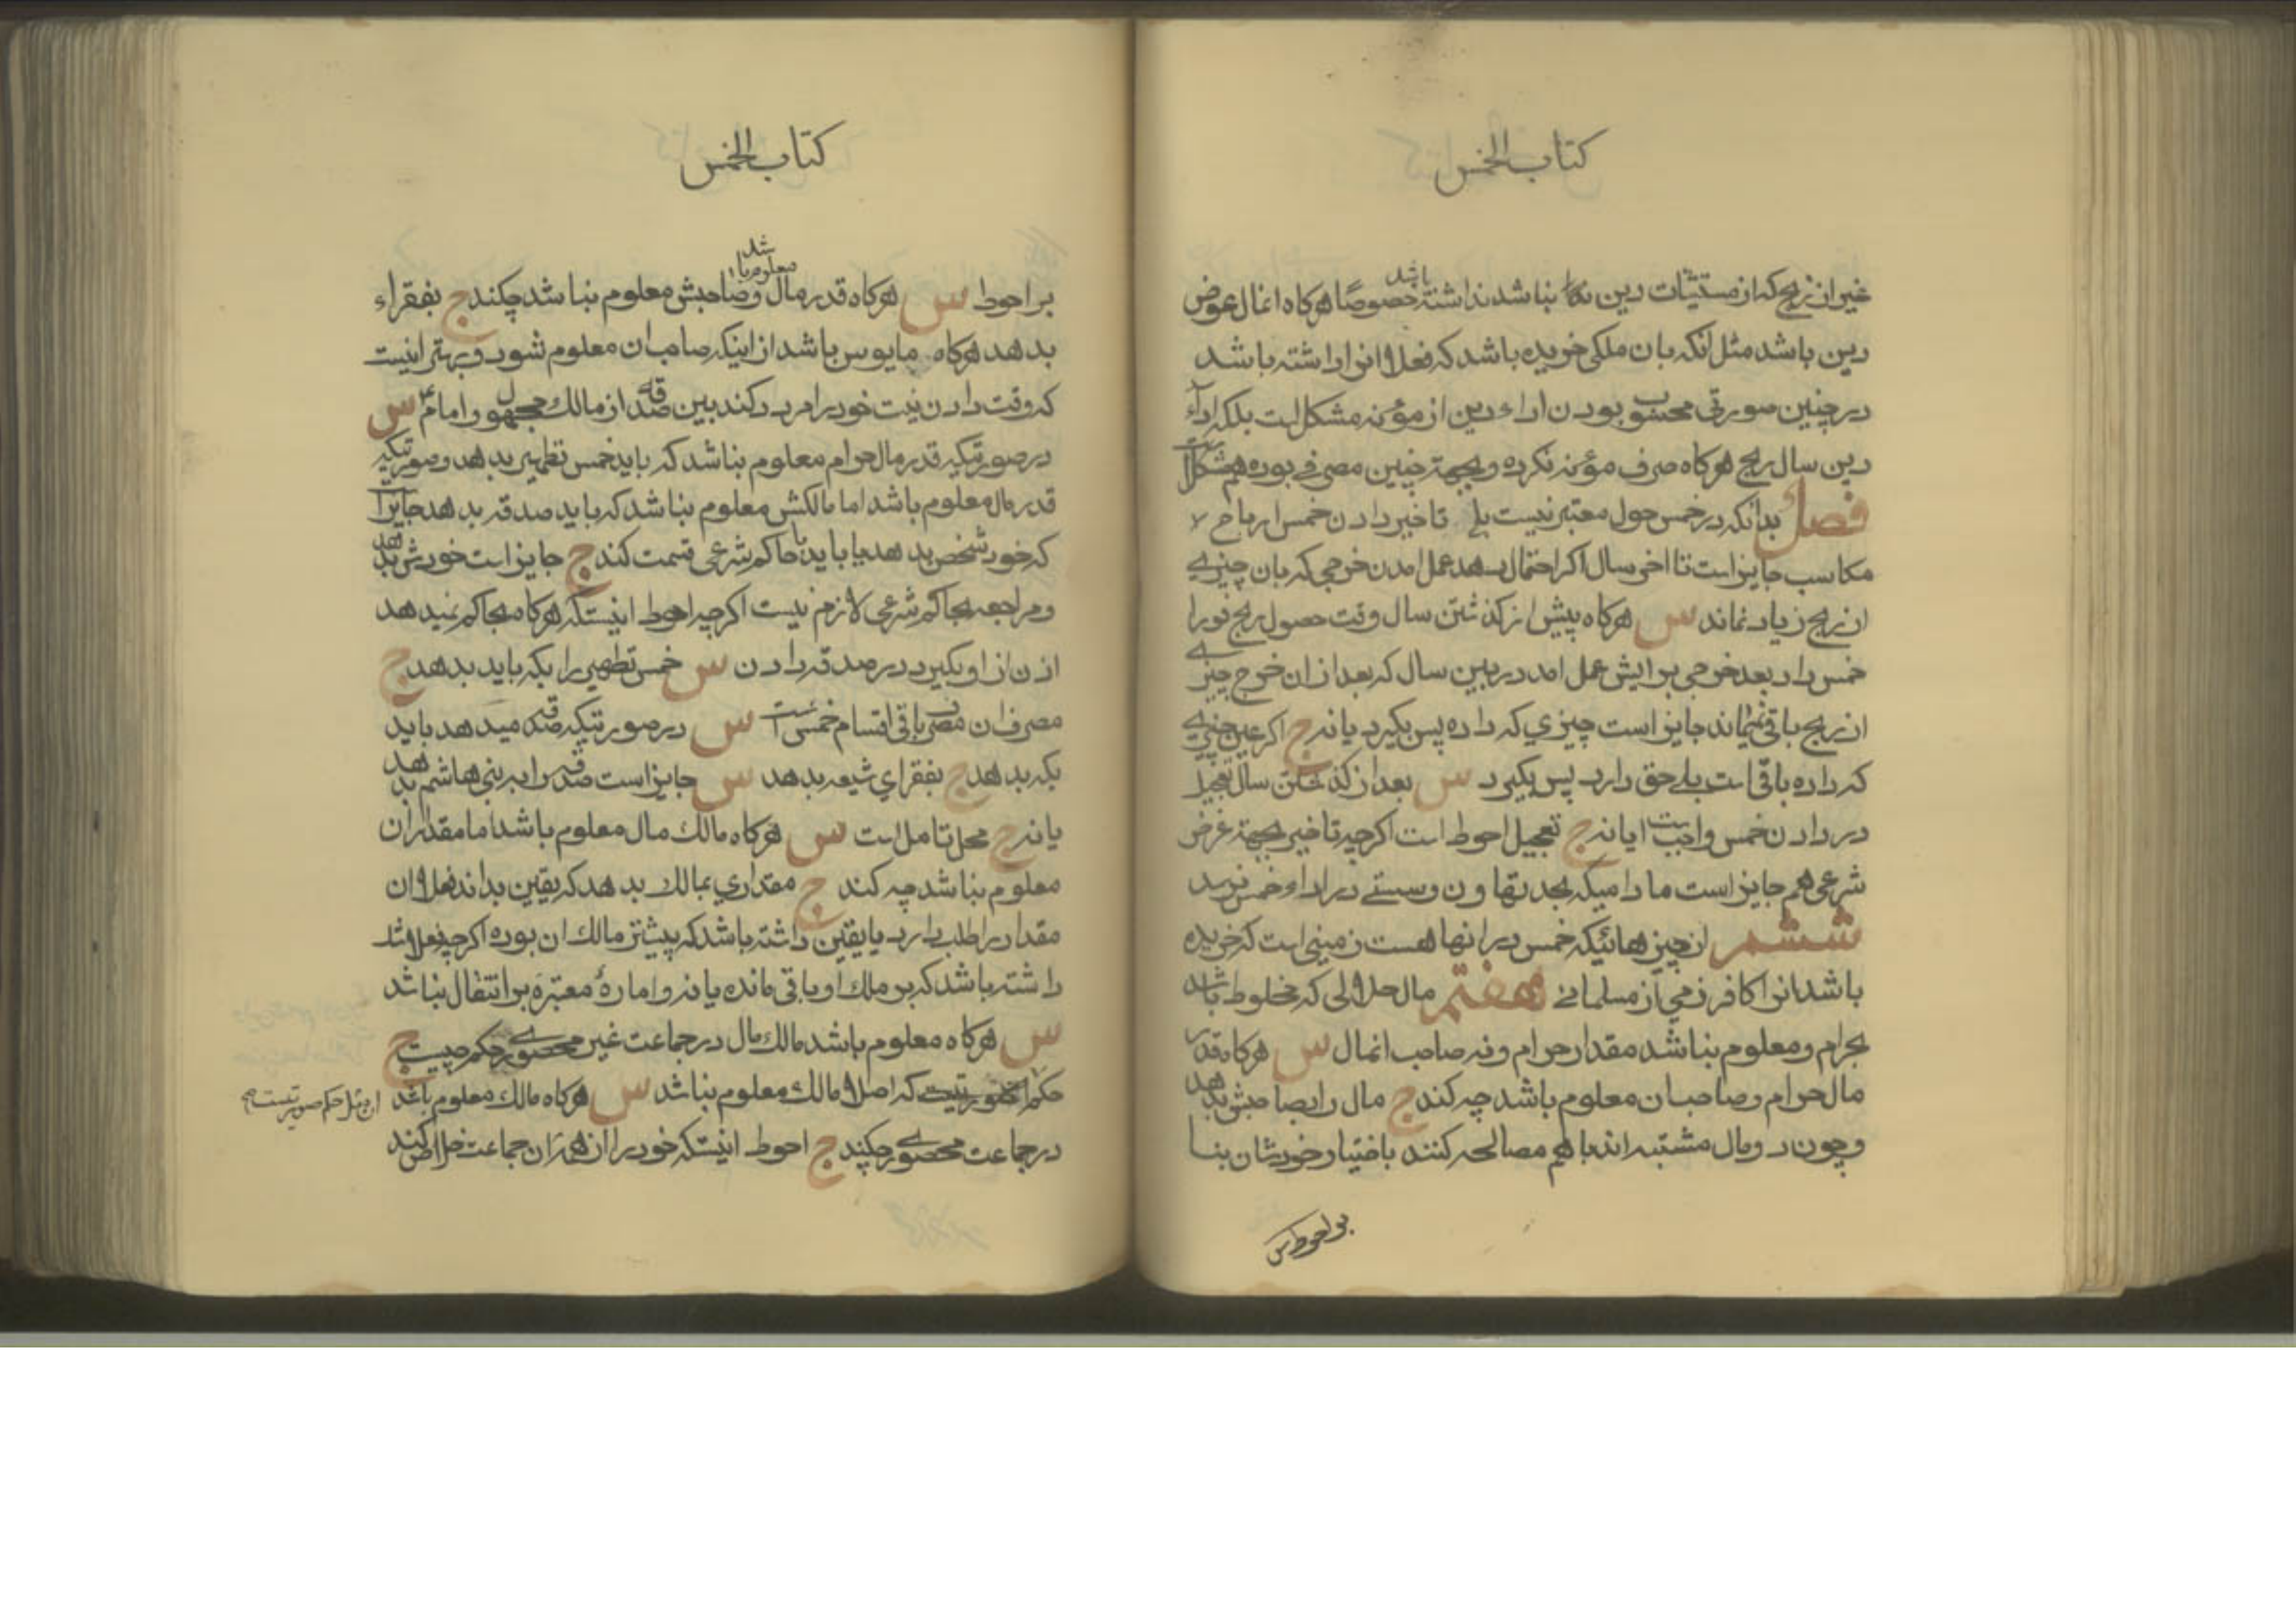 كتاب الخمس
غیر از ربح که از مستثنیات دین بناشد نداشته باشد خصوصًا هرکاه انمال عوض
دین باشد مثل آنکه بان ملکی خریده باشد که فعلا انرا داشته باشد
در چنین صورتی محسوب بودن اداء دین از مؤنه مشکل است بلکه اداء
دین سال ربح هرکاه صرف مؤنه نکرده و بجهة چنین مصرفی بوده هم مشکل است
فصل بدانکه در خمس حول معتبر نیست بلی تاخیر دادن خمس ارباح
مکاسب جایز است تا اخر سال اکر احتمال بدهد عمل امدن خرجی که بان چیزی
از ربح زیاد نماند س هرکاه پیش از کذشتن سال وقت حصول ربح نورا
خمس داد بعد خرجی برایش عمل امد در بین سال که بعد از ان خرج چیزی
از ربح باقی نماند جایز است چیزي که داده پس بکیرد یا نه ج اکر عین چیزی
که داده باقی است بلی حق دارد پس بکیرد س بعد از کذشتن سال تعجیل
در دادن خمس واجب است ایا نه ج تعجیل احوط است اکرچه تاخیر بجهة غرض
شرعی هم جایز است مادامیکه بحد تهاون و سستے در اداء خمس نرسد
ششم از چیزهائیکه خمس در انها هست زمینی است که خریده
باشد انرا کافر ذمي از مسلمانے هفتم مال حلالی که مخلوط باشد
بحرام و معلوم بناشد مقدار حرام و نه صاحب انمال س هرکاه قدر
مال حرام و صاحب ان معلوم باشد چه کند ج مال را بصاحبش بدهد
و چون دو مال مشتبه اند با هم مصالحه کنند باختیار خودشان بنا
بر احوط س
كتاب الخمس
بر احوط س هرکاه قدر مال معلوم باشد و صاحبش معلوم بناشد چکند ج بفقراء
بدهد هرکاه مایوس باشد از اینکه صاحب ان معلوم شود و بهتر اینست
که وقت دادن نیت خود را مردد کند بین صدقه از مالک مجهول و امام ع س
در صورتیکه قدر مال حرام معلوم بناشد که باید خمس تطهیر بدهد و صورتیکه
قدر مال معلوم باشد اما مالکش معلوم بناشد که باید صدقه بدهد جایز است
که خود شخص بدهد یا باید با حاکم شرعی قسمت کند ج جایز است خودش بدهد
و مراجعه بحاکم شرعی لازم نیست اکرچه احوط اینستکه هرکاه بحاکم نمیدهد
اذن از او بکیرد در صدقه دادن س خمس تطهیر را بکه باید بدهد ج
مصرف ان مصرف باقی اقسام خمس است س در صورتیکه صدقه میدهد باید
بکه بدهد ج بفقراي شیعه بدهد س جایز است صدقه را به بنی هاشم بدهد
یا نه ج محل تامل است س هرکاه مالک مال معلوم باشد اما مقدار ان
معلوم بناشد چه کند ج مقداري بمالک بدهد که یقین بداند فعلا ان
مقدار را طلب دارد یا یقین داشته باشد که پیشتر مالک ان بوده اکرچه فعلا شک
داشته باشد که بر ملک او باقی مانده یا نه و امارهٔ معتبره بر انتقال بناشد
س هرکاه معلوم باشد مالک مال در جماعت غیر محصوری حکم چیست ج
حکم که اصلا مالک معلوم بناشد س هرکاه مالک معلوم باشد
ان مثل حکم صورتیست
در جماعت محصورے چکند ج احوط اینستکه خود را از همهٔ ان جماعت خلاص کند